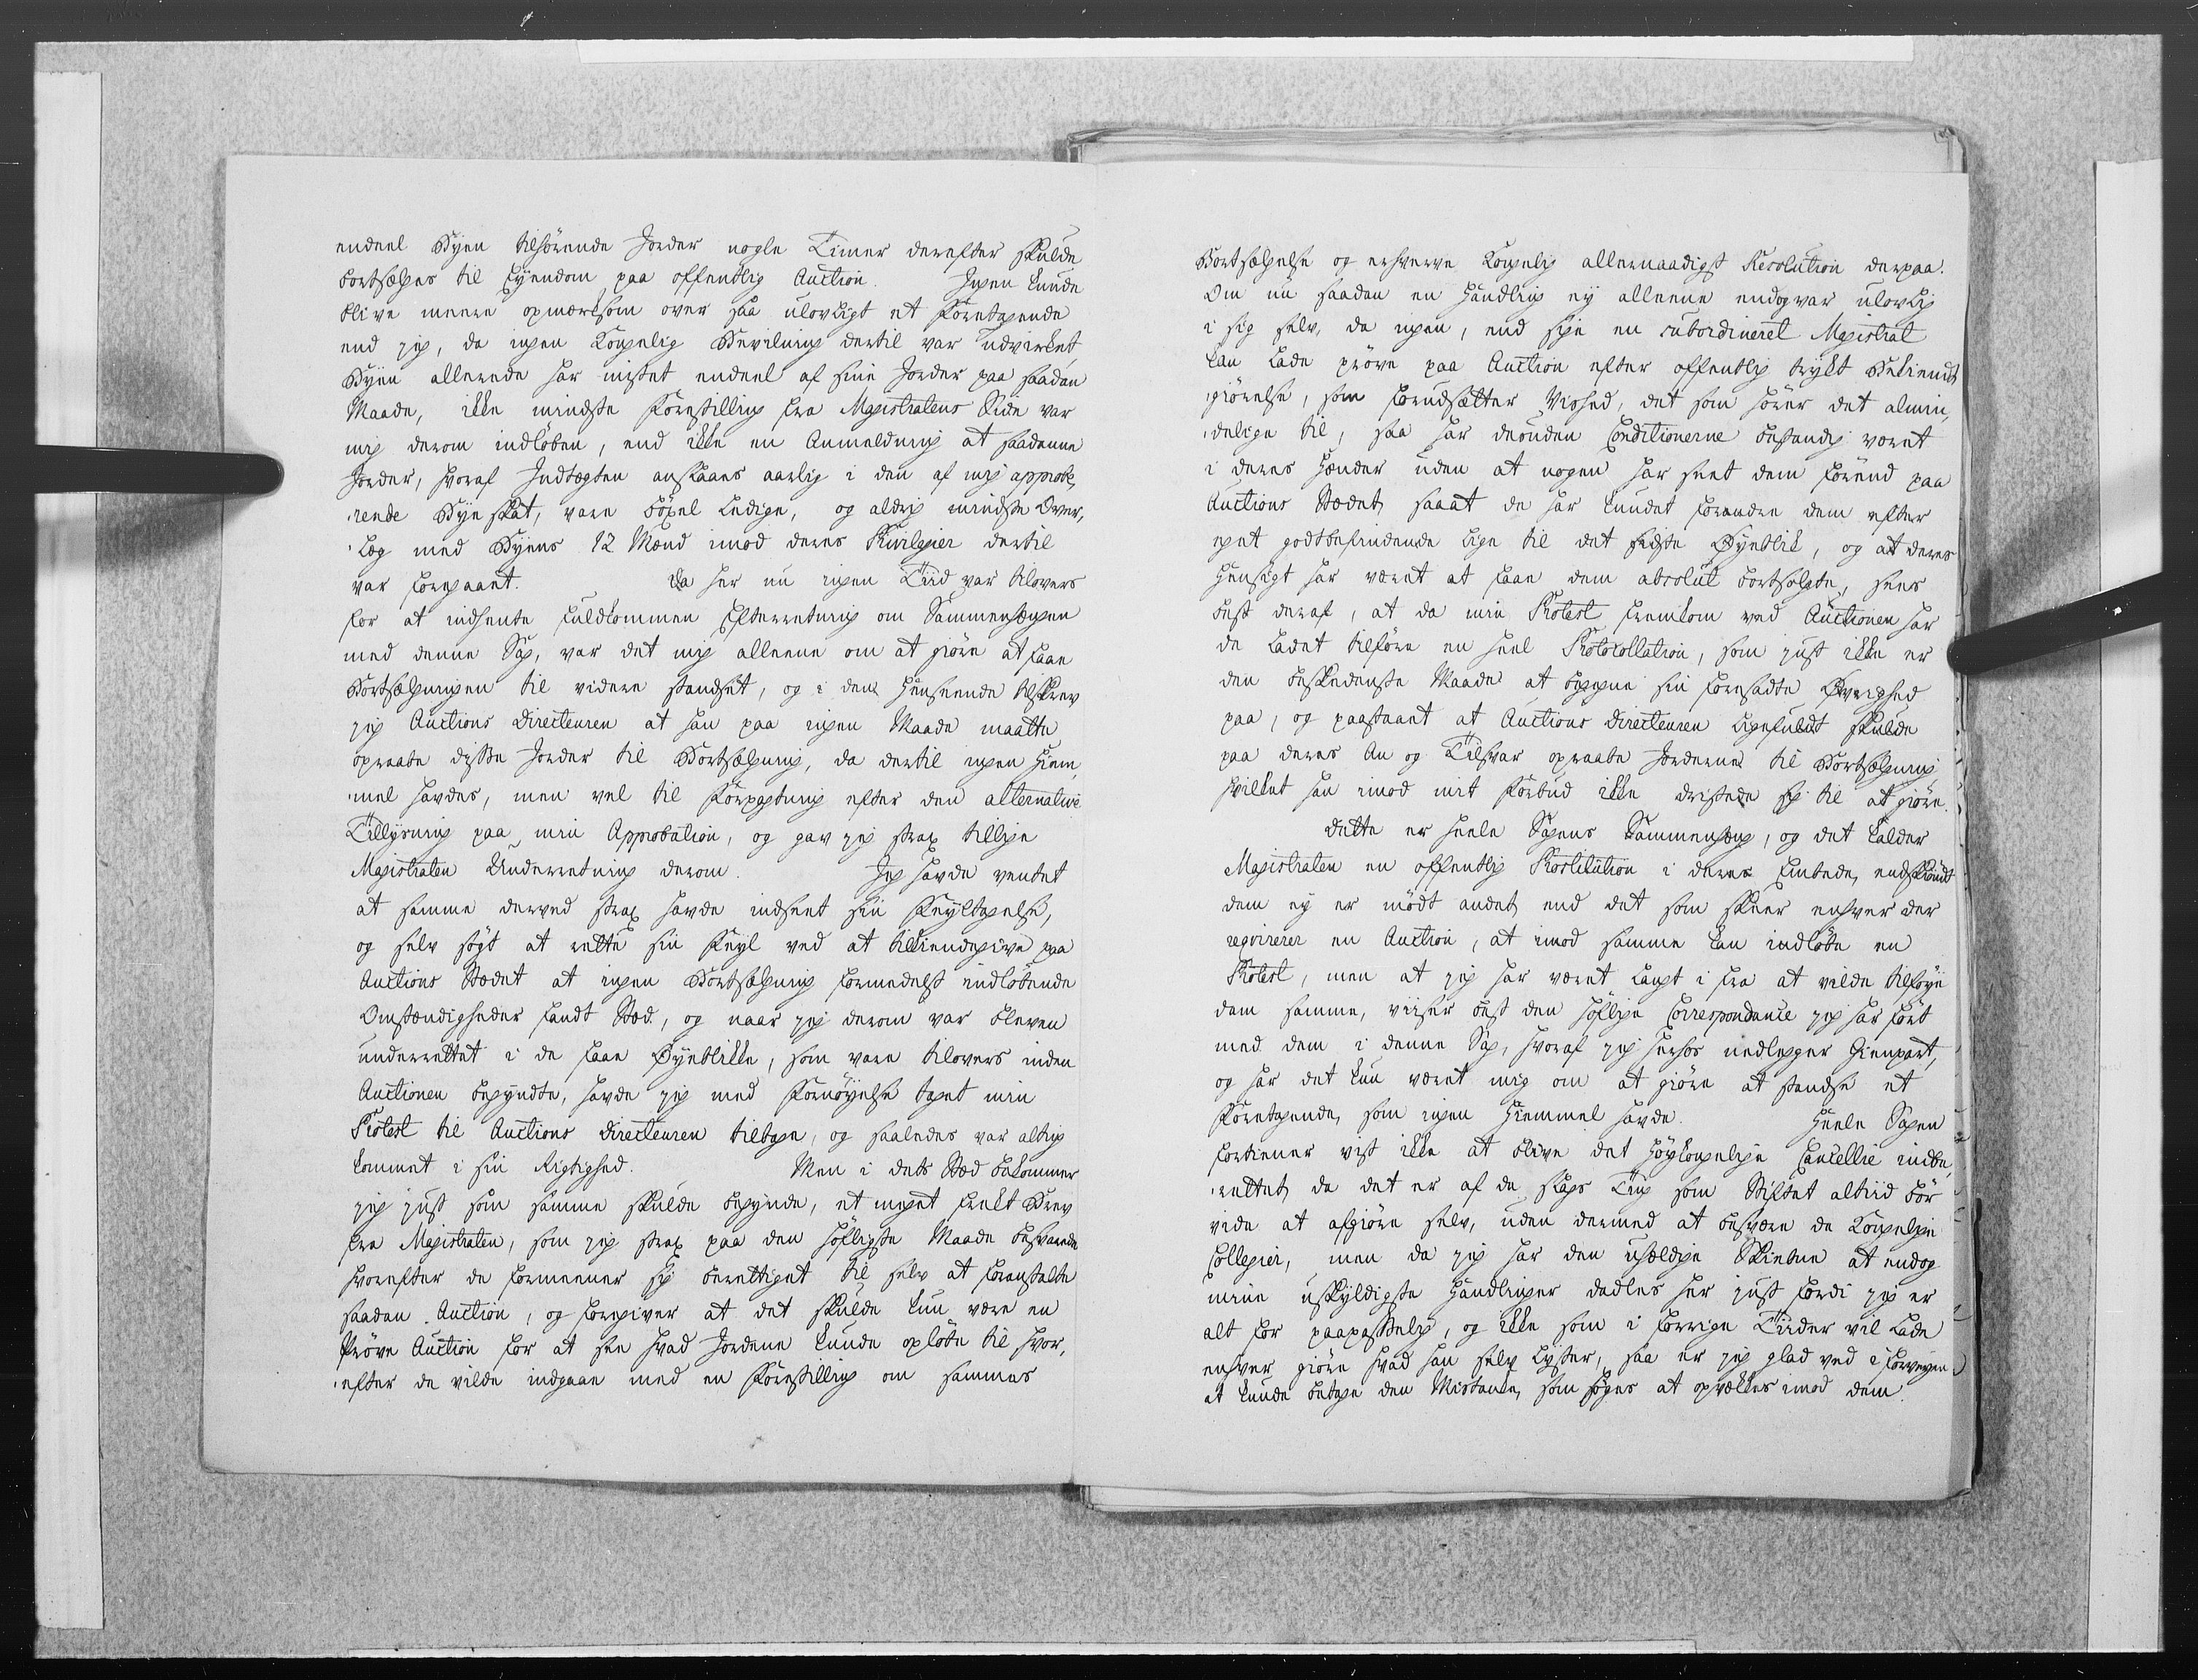 endeel Byen tilhørende Jorder nogle Timer derefter skulde
bortsælges til Eyendom paa offentlig Auction. Ingen kunde
blive meere opmærksom over saa ulovligt et Foretagende
end jeg, da ingen Kongelig Bevilning dertil var udvirket
Byen allerede har mistet endeel af sine Jorder paa saadan
Maade, ikke mindste Forestilling fra Magistratens Side var
mig derom indløben, end ikke en Anmeldning at saadanne
Jorder, hvoraf Indtægten anslaaes aarlig i den af mig approbe,
rende Bye skat, vare bøxel ledige, og aldrig mindste Over,
læg med Byens 12 Mænd imod deres Privilegier dertil
var foregaaet. Da her nu ingen Tiid var tilovers
for at indhente fuldkommen Efterretning om Sammenhængen
med denne Sag, var det mig alleene om at giøre at faae
Bortsælgningen til videre standset, og i den Henseende tilskrev
jeg Auctions Directeuren at han paa ingen Maade maatte
opraabe disse Jorder til Bortsælgning, da dertil ingen Hiem,
mel havdes, men vel til Forpagtning efter den alternative
Tillysning paa min Approbation, og gav jeg strax tillige
Magistraten Underretning derom. Jeg havde ventet
at samme derved strax havde indseet sin Feyltagelse,
og selv søgt at rette sin Feyl ved at tilkiendegive paa
Auctions Stædet at ingen Bortsælgning formedelst indløbende
Omstændigheder fandt Stæd, og naar jeg derom var bleven
underrettet i de faae Øyeblikke, som vare tilovers inden
Auctionen begyndte, havde jeg med Fornøyelse taget min
Protest til Auctions Directeuren tilbage, og saaledes var alting
kommet i sin Rigtighed. Men i dets Stæd bekommer
jeg just som samme skulde begynde, et meget frekt Brev
fra Magistraten, som jeg strax paa den høfligste Maade besvarede
hvorefter de formeener sig berettiget til selv at foranstalte
saadan Auction, og foregiver at det skulde kun være en
Prøve Auction for at see hvad Jordene kunde opløbe til hvor,
efter de vilde indgaae med en Forestilling om sammes
Bortsælgelse og erhverve Kongelig allernaadigst Resolution derpaa.
Om nu saadan en Handling ey alleene endog var ulovlig
i sig selv, da ingen, end sige en subordineret Magistrat
kan lade prøve paa Auction efter offentlig trykt Bekiendt
giørelse, som forudsætter Vished, det som hører det almin,
delige til, saa har desuden Conditionerne bestandig været
i deres Hænder uden at nogen har seet dem førend paa
Auctions Stædet, saa at de har kundet forandre dem efter
eget godtbefindende lige til det sidste Øyeblik, og at deres
Hensigt har været at faae dem absolut bortsolgte, sees
best deraf, at da min Protest fremkom ved Auctionen har
de ladet tilføre en heel Protocollation, som just ikke er
den beskedenste Maade at begegne sin foresadte Øvrighed
paa, og paastaaet at Auctions Directeuren ligefuldt skulde
paa deres An og Tilsvar opraabe Jorderne til Bortsælgning,
hvilket han imod mit Forbud ikke dristede sig til at giøre.
Dette er heele Sagens Sammenhæng, og det kalder
Magistraten en offentlig Prostitution i deres Embede, endskiøndt
dem ey er mødt andet, end det som skeer enhver der
reqvirerer en Auction, at imod samme kan indløbe en
Protest, men at jeg har været langt i fra at vilde tilføye
dem samme, viiser best den høflige Correspondance jeg har ført
med dem i denne Sag, hvoraf jeg herhos nedlegger Gienpart,
og har det kun været mig om at giøre at standse et
Foretagende, som ingen Hiemmel havde. Heele Sagen
fortiener vist ikke at blive det høykongelige Cancellie indbe,
rettet, da det er af de slags Ting som Stiftet altiid bør
vide at afgiøre selv, uden dermed at besvære de Kongelige
Collegier, men da jeg har den uheldige Skiebne at endog
mine uskyldigste Handlinger dadles her just fordi jeg er
alt for paapasselig, og ikke som i forrige Tiider vil lade
enhver giøre hvad han selv lyster, saa er jeg glad ved i forveyen
at kunde betage den Mistanke, som søges at opvækkes imod dem.